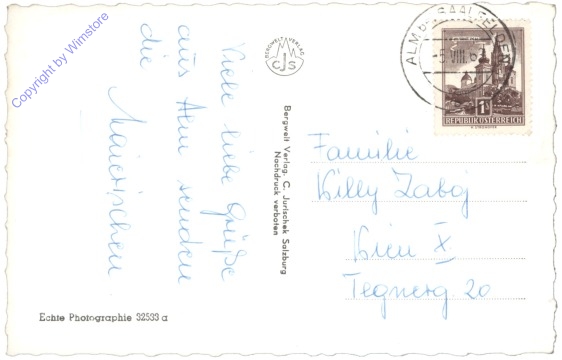 Copyright by Wimstore
Viele liebe Grüße
aus Alm senden
die
BERGWELT-VERLAG
CJS
Bergwelt Verlag, C. Jurischek Salzburg
Nachdruck verboten
ALM b. SAALFELDEN
1
REPUBLIK ÖSTERREICH
Familie
Willy
Wien X
20
Echte Photographie 32533 a